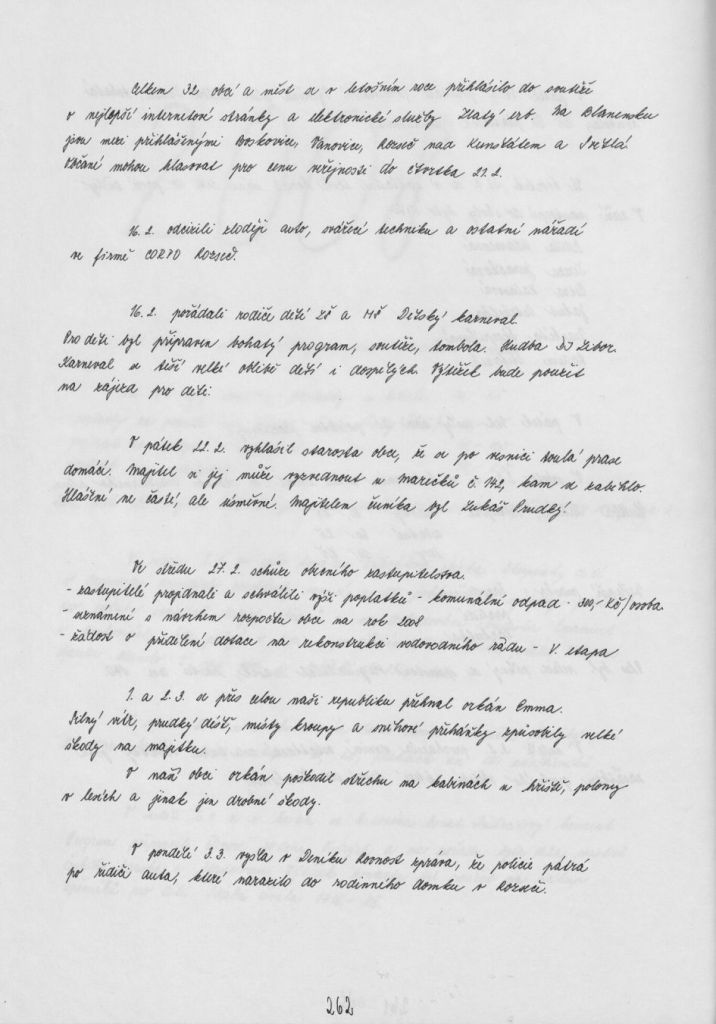 Celkem 32 obcí a měst se v letošním roce přihlásilo do soutěže
o nejlepší internetové stránky a elektronické služby Zlatý erb. Na Blanensku
jsou mezi přihlášenými Boskovice, Vanovice, Rozseč nad Kunštátem a Světlá.
Občané mohou hlasovat pro cenu veřejnosti do čtvrtka 21.2.
16.2. odcizili zloději auto, svářecí techniku a ostatní nářadí
ve firmě CORPO Rozseč.
16.2. pořádali rodiče dětí ZŠ a MŠ Dětský karneval.
Pro děti byl připraven bohatý program, soutěže, tombola. Hudba DJ Libor.
Karneval se těší velké oblibě dětí i dospělých. Výtěžek bude použit
na zájezd pro děti.
V pátek 22.2. vyhlásil starosta obce, že se po vesnici toulá prase
domácí. Majitel si jej může vyzvednout u Marečků č. 142, kam se zaběhlo.
Hlášení ne časté, ale úsměvné. Majitelem čuníka byl Lukáš Prudký.
Ve středu 27.2. schůze obecního zastupitelstva.
- zastupitelé projednali a schválili výši poplatků - komunální odpad - 300,- Kč/osoba
- seznámení s návrhem rozpočtu obce na rok 2008
- žádost o přidělení dotace na rekonstrukci vodovodního řádu - V. etapa
1. a 2.3. se přes celou naši republiku přehnal orkán Emma.
Silný vítr, prudký déšť, místy kroupy a sněhové přeháňky způsobily velké
škody na majetku.
V naší obci orkán poškodil střechu na kabinách u hřiště, polomy
v lesích a jinak jen drobné škody.
V pondělí 3.3. vyšla v Deníku Rovnost zpráva, že policie pátrá
po řidiči auta, které narazilo do rodinného domku v Rozseči.
262